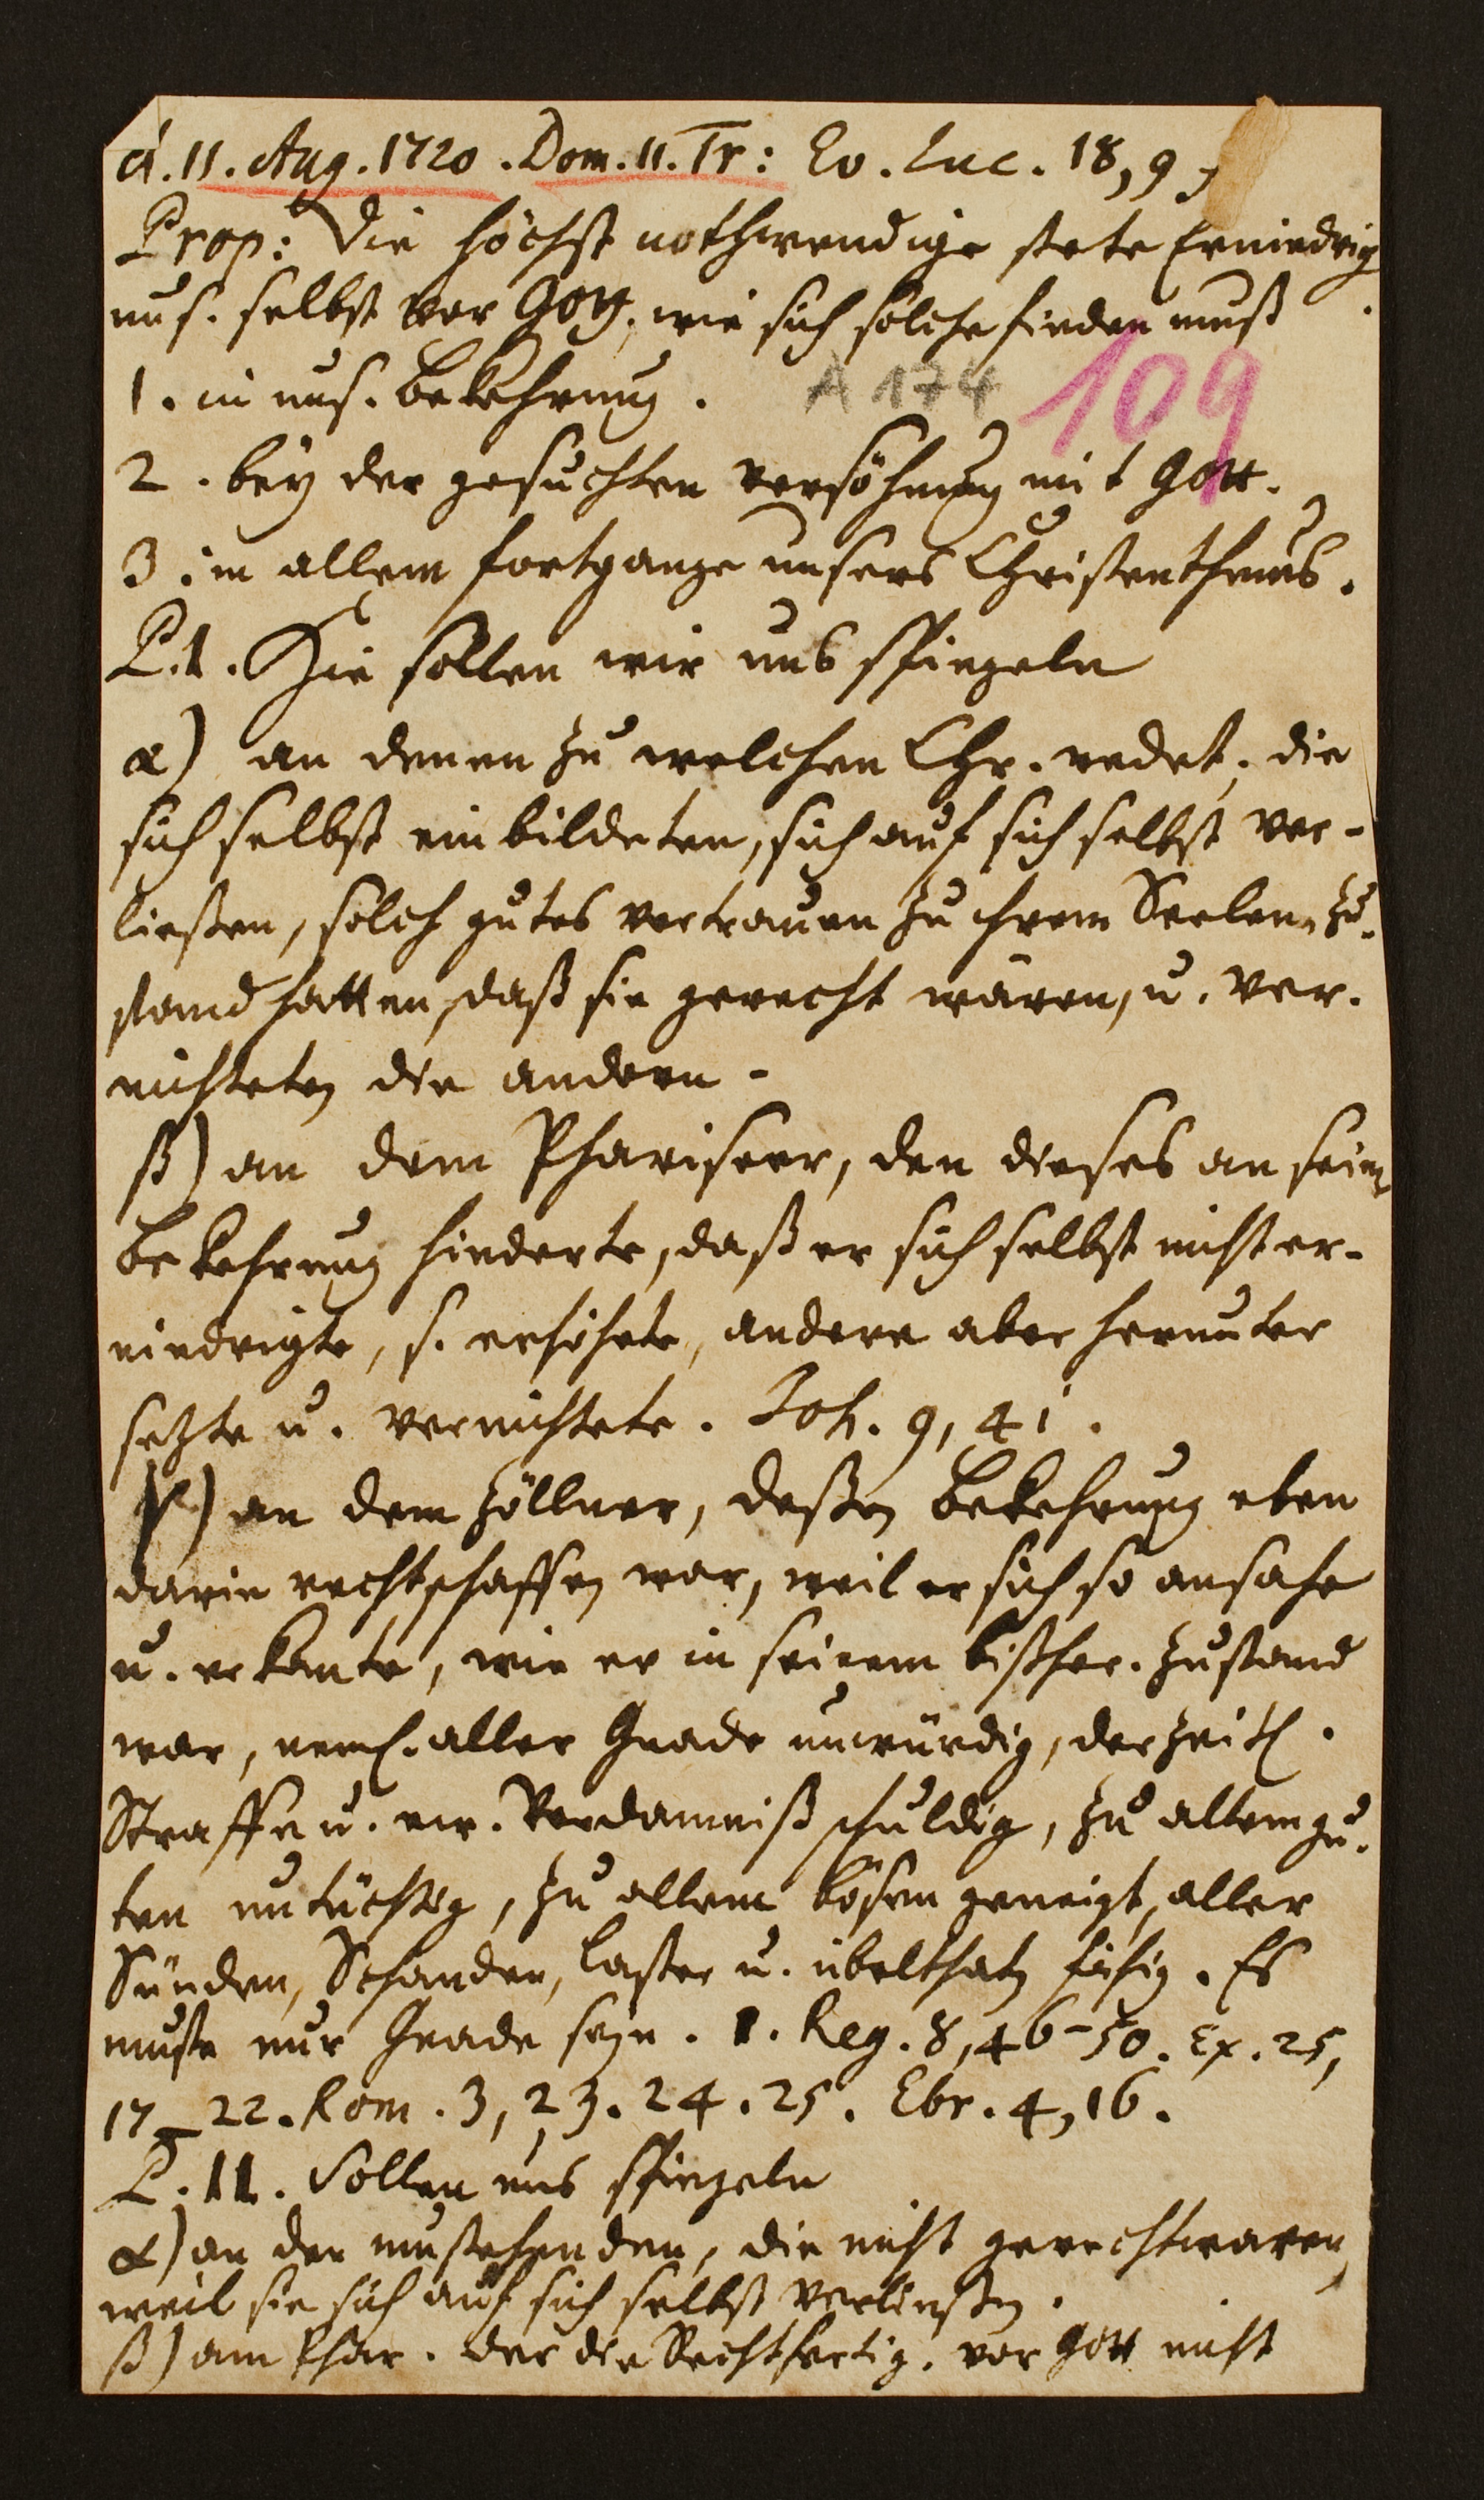 d. 11. Aug. 1720. Dom. 11. Tr: Ev. Luc. 18, 9
Prop: Die höchst nothwendige stete Erniedrig
uns. selbst vor Gott, wie sich solche finden muß
1. in uns. Bekehrung. A 174 109
2. bey der gesuchten versöhnung mit Gott.
3. im allem fortgange unsers Christenthums.
P. I. Hie sollen wir uns spiegeln
α) an denen zu welchen Chr. redet, die
sich selbst einbildeten, sich auf sich selbst ver-
ließen, solch gutes vertrauen zu ihrem Seelen zu-
stand hatten, daß sie gerecht wären, u. ver-
nichteten die andern.
β) an dem Phariseer, den dieses an sein
Bekehrung hinderte, daß er sich selbst nicht er-
niedrigte, s. erhöhete, andere aber herunter
setzte u. vernichtete. Joh. 9, 41.
γ) an dem Zöllner, deßen Bekehrung eben
darin rechtschaffen war, weil er sich so ansahe
u. erkante, wie er in seinem bisher. Zustand
war, neml. aller Gnade unwürdig, der zeitl.
Straffe u. ew. Verdamniß schuldig, zu allem gu-
ten untüchtig, zu allem bösen geneigt, aller
Sünden, Schanden, laster u. übelthaten fähig. Es
muste nur Gnade seyn. 1. Reg. 8, 46-50. Ex. 25,
17-22. Rom. 3, 23. 24. 25. Ebr. 4, 16.
P. II. Sollen uns spiegeln
α) an den umstehenden, die nicht gerecht waren,
weil sie sich auf sich selbst verließen.
β) am Phar. der die Rechtfertig. vor Gott nicht